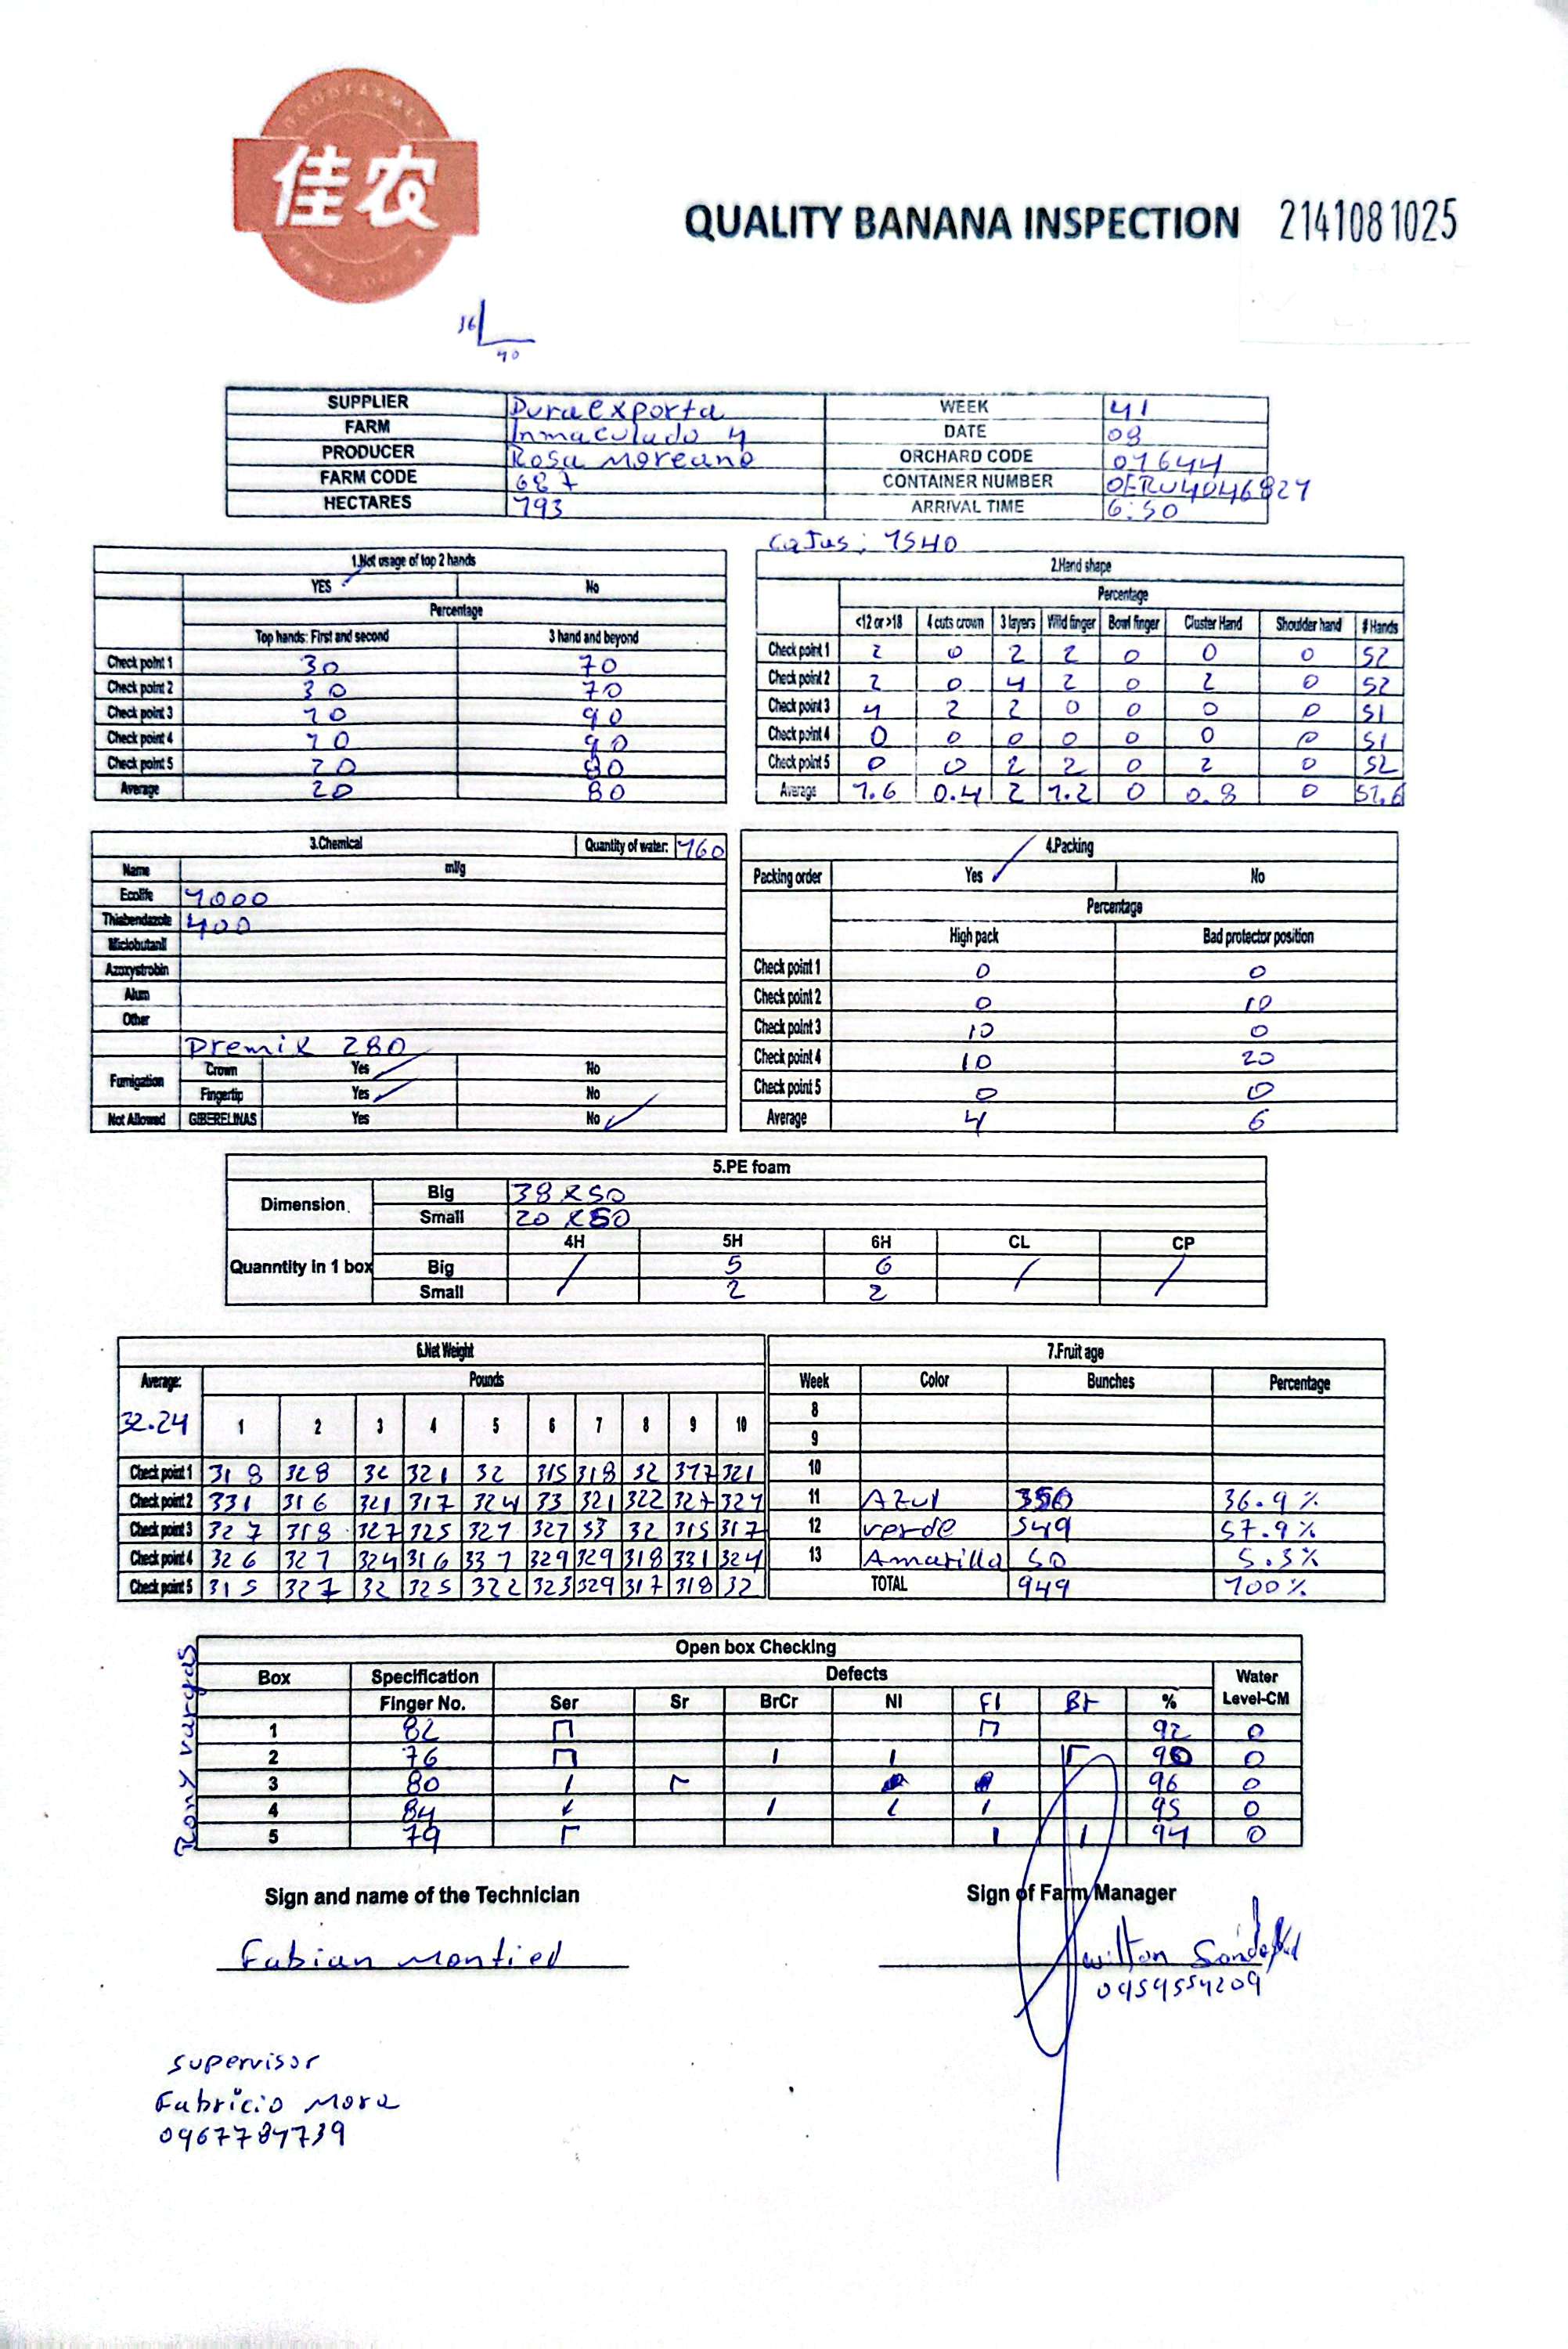 GOODFARMER
佳农
QUALITY BANANA INSPECTION 2141081025
16
40
SUPPLIER Duraexporta WEEK 41
FARM Inmaculado 4 DATE 08
PRODUCER Rosa Moreano ORCHARD CODE 01644
FARM CODE 687 CONTAINER NUMBER OERU4046827
HECTARES 193 ARRIVAL TIME 6:50
Cajas: 1540
1.Not usage of top 2 hands
YES ✓ No
Percentage
Top hands: First and second 3 hand and beyond
Check point 1 30 70
Check point 2 30 70
Check point 3 10 90
Check point 4 10 90
Check point 5 20 80
Average 20 80
2.Hand shape
Percentage
<12 or >18 4 cuts crown 3 layers Wild finger Bowl finger Cluster Hand Shoulder hand # Hands
Check point 1 2 0 2 2 0 0 0 52
Check point 2 2 0 4 2 0 2 0 52
Check point 3 4 2 2 0 0 0 0 51
Check point 4 0 0 0 0 0 0 0 51
Check point 5 0 0 2 2 0 2 0 52
Average 1.6 0.4 2 1.2 0 0.8 0 51.6
3.Chemical Quantity of water: 160
Name ml/g
Ecolife 1000
Thiabendazole 400
Miclobutanil
Azoxystrobin
Alum
Other
Premix 280
Fumigation Crown Yes ✓ No
Fingertip Yes ✓ No
Not Allowed GIBERELINAS Yes No ✓
4.Packing
Packing order Yes ✓ No
Percentage
High pack Bad protector position
Check point 1 0 0
Check point 2 0 10
Check point 3 10 0
Check point 4 10 20
Check point 5 0 0
Average 4 6
5.PE foam
Dimension Big 38x50
Small 20x50
4H 5H 6H CL CP
Quanntity in 1 box Big / 5 6 / /
Small 2 2
6.Net Weight
Average: Pounds
32.24 1 2 3 4 5 6 7 8 9 10
Check point 1 318 328 32 321 32 315 318 32 317 321
Check point 2 331 316 321 317 324 33 321 322 327 321
Check point 3 327 318 327 325 321 327 33 32 315 317
Check point 4 326 321 324 316 331 329 329 318 331 324
Check point 5 315 327 32 325 322 323 329 317 318 32
7.Fruit age
Week Color Bunches Percentage
8
9
10
11 Azul 350 36.9%
12 verde 549 57.9%
13 Amarilla 50 5.3%
TOTAL 949 100%
Rony vargas
Open box Checking
Box Specification Defects Water
Finger No. Ser Sr BrCr NI Fl Br % Level-CM
1 82 92 0
2 76 90 0
3 80 96 0
4 84 95 0
5 79 94 0
Sign and name of the Technician Sign of Farm Manager
Fabian Montiel wilton
0959559209
supervisor
Fabricio Mora
0967787739